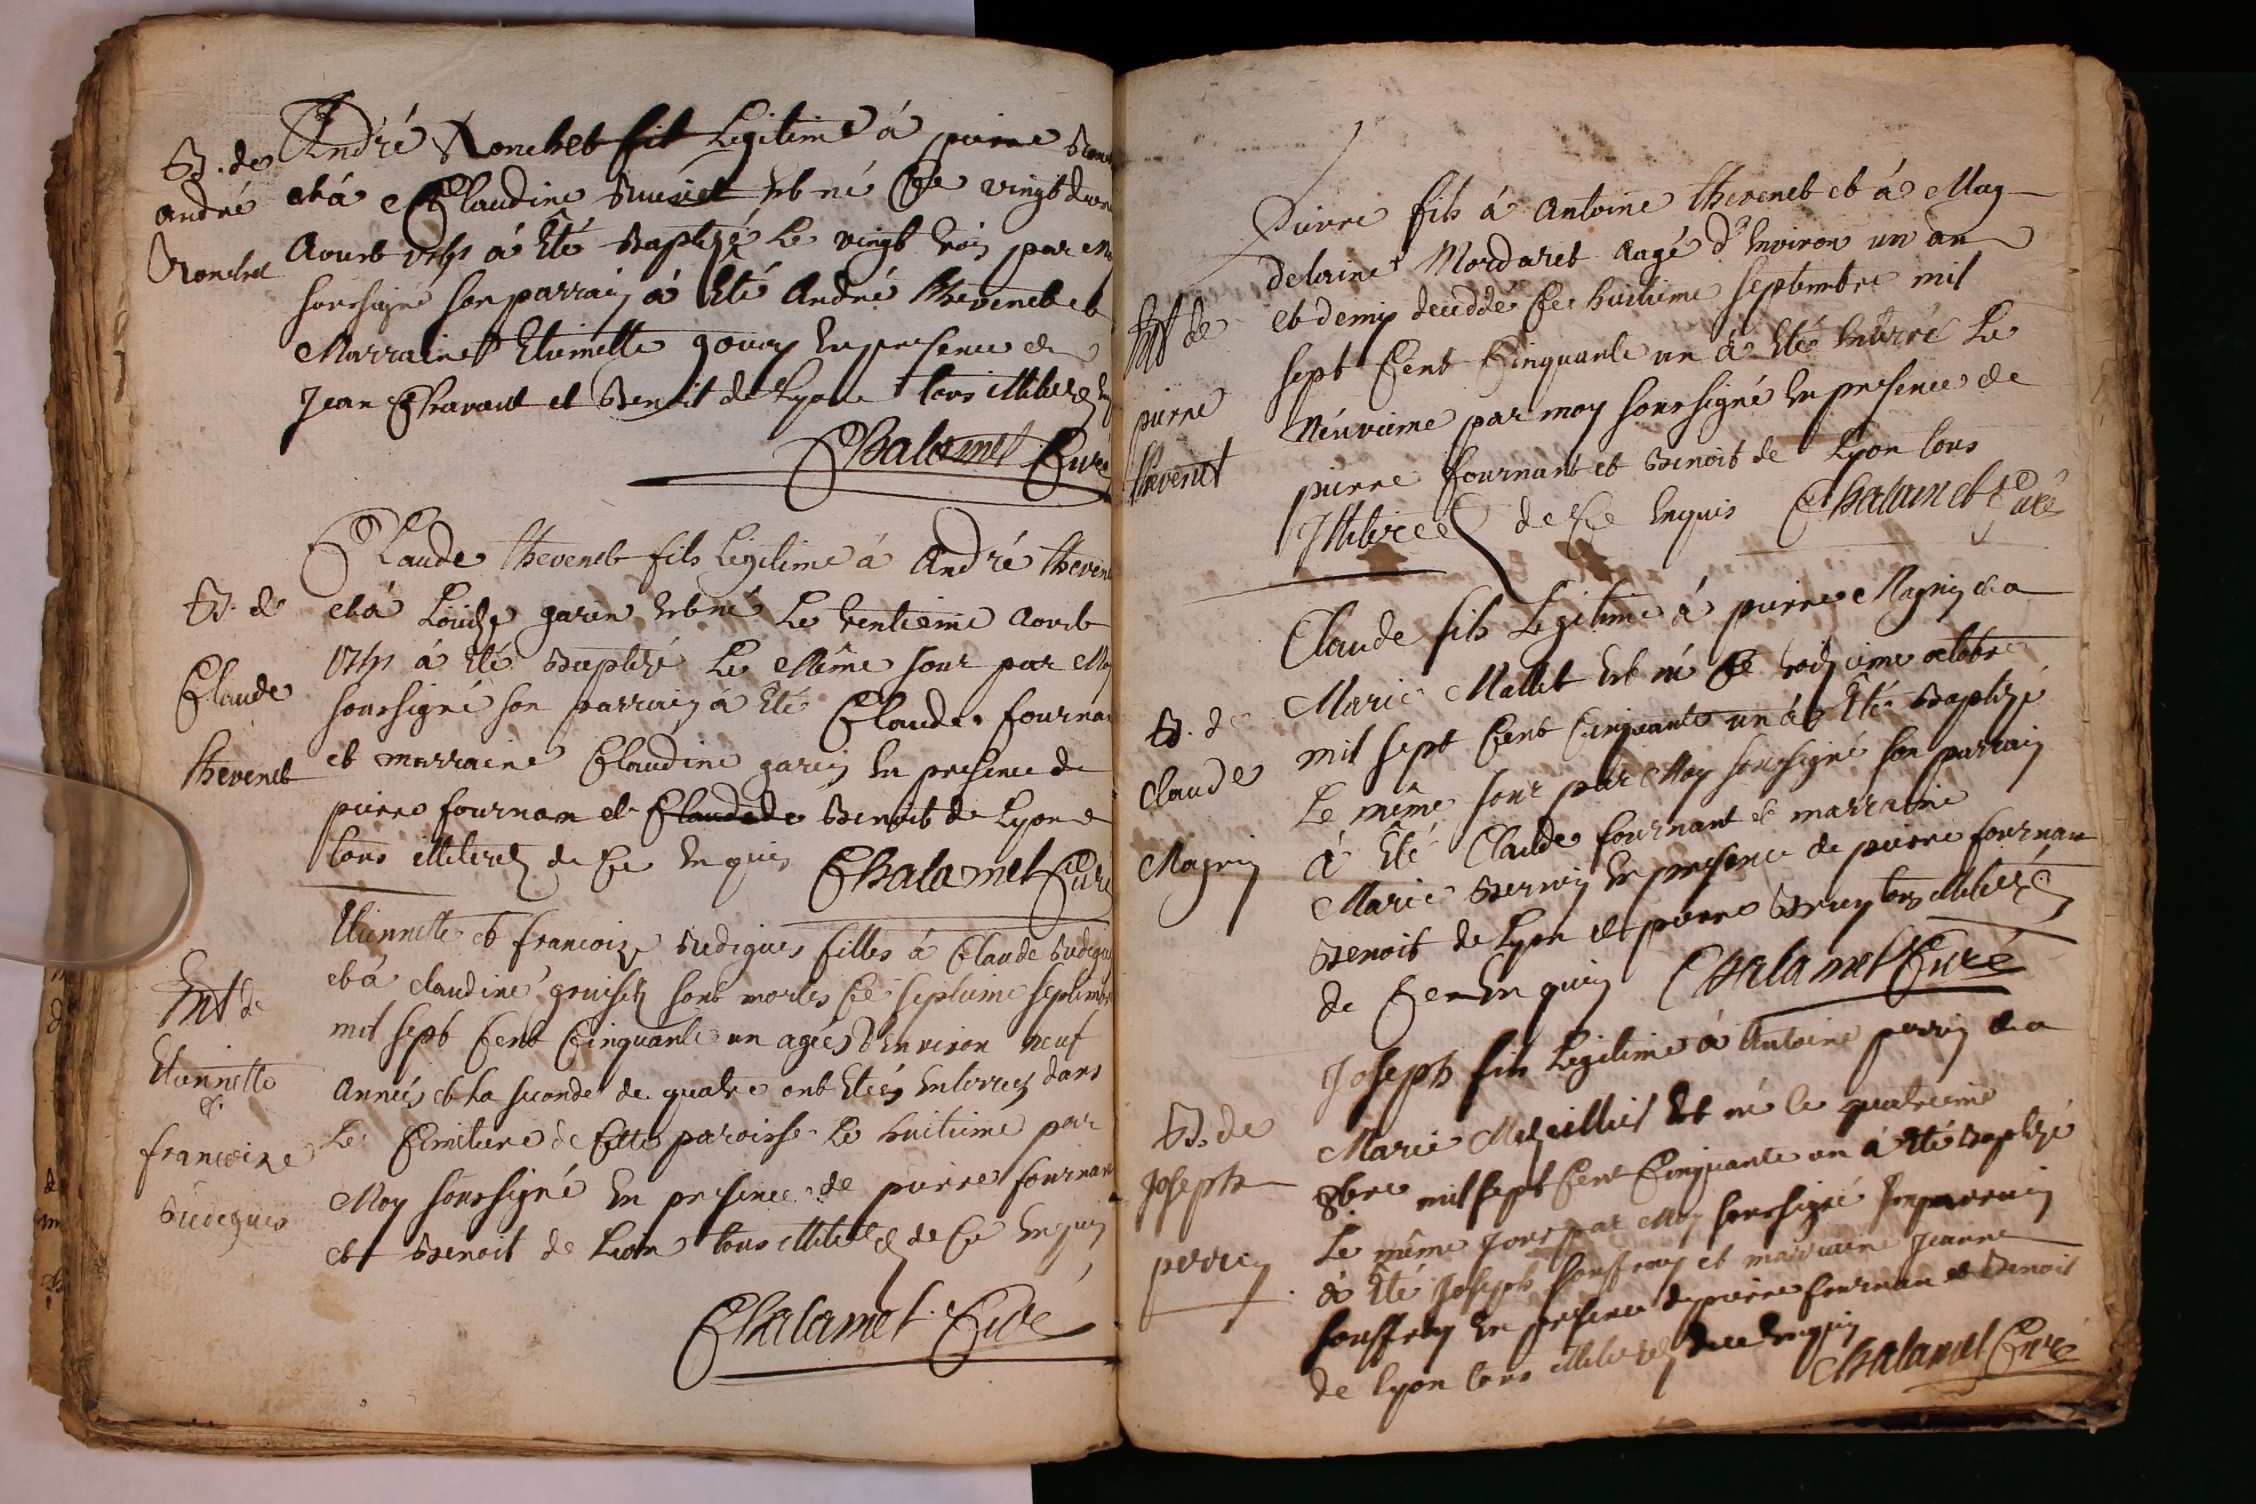 B. de
André
Ronchet
André Ronchet fils Legitime á pierre
et á Claudine est né Ce vingt deux
Aoust 1751 á Eté Baptizé Le vingt trois par
soussigné son parrain á Eté André thevenet et
Marraine Etiennette gouy En presence de
Jean Chavant et Benoit de Lyon tous illiterez
Chalamet Curé
B. de
Claude
thevenet
Claude thevenet fils Legitime á André theven
et á Louize garin est né Le trentieme Aoust
1751 á Eté Baptizé Le Même Jour par Moy
soussigné son parrain á Eté Claude fournan
et marraine Claudine garin En presence de
pierre fournan et Claude de Benoit de Lyon
tous illiterez de Ce Enquis Chalamet Curé
Ent de
Etiennette
et
francoize
Budigues
Etiennette et francoize Budigues filles á Claude Budigues
et á claudine sont mortes Ce septieme septembre
mil sept Cent Cinquante un agées D'Environ neuf
Années et La seconde de quatre ont Etées Enterrez dans
Le Cimitiere de Cette paroisse Le huitieme par
Moy soussigné En presence de pierre fournan
et Benoit de Lion tous illiterez de Ce Enquis
Chalamet Curé
Ent de
pierre
thevenet
Pierre fils á Antoine thevenet et á Mag
delaine Mordaret Aagé D'Environ un an
et demy decedde Ce huitieme septembre mil
sept Cent Cinquante un á Eté Enterré Le
Neuvieme par moy soussigné En presence de
pierre fournant et Benoit de Lyon tous
Illiterez de Ce Enquis Chalamet Curé
B. de
Claude
Magnin
Claude fils Legitime á pierre Magnin et a
Marie Mallet est né Ce troizieme octobre
mil sept Cent Cinquante un á Eté Baptizé
Le même Jour par Moy soussigné son parrain
á Eté Claude fournant et marraine
Marie Bernin En presence de pierre fournan
Benoit de Lyon et pierre Bruy tous illiterez
de Ce Enquis Chalamet Curé
B. de
Joseph
perrin
Joseph fils Legitime á Antoine perrin et a
Marie est né le quatrieme
8bre mil sept Cent Cinquante un á Eté Baptizé
Le même Jour par Moy soussigné son parrain
á Eté Joseph souffrey et marraine Jeanne
souffrey En presence de pierre fournan et Benoit
de Lyon tous illiterez de ce Enquis
Chalamet Curé